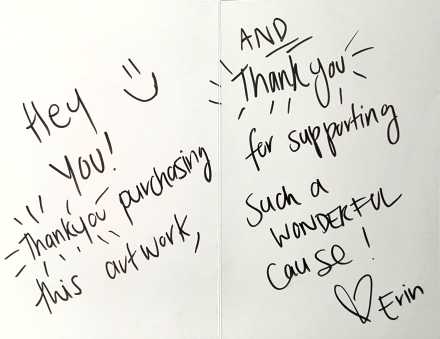 Hey
You!
Thankyou purchasing
this artwork,
AND
Thank you
for supporting
such a
WONDERFUL
cause!
Erin